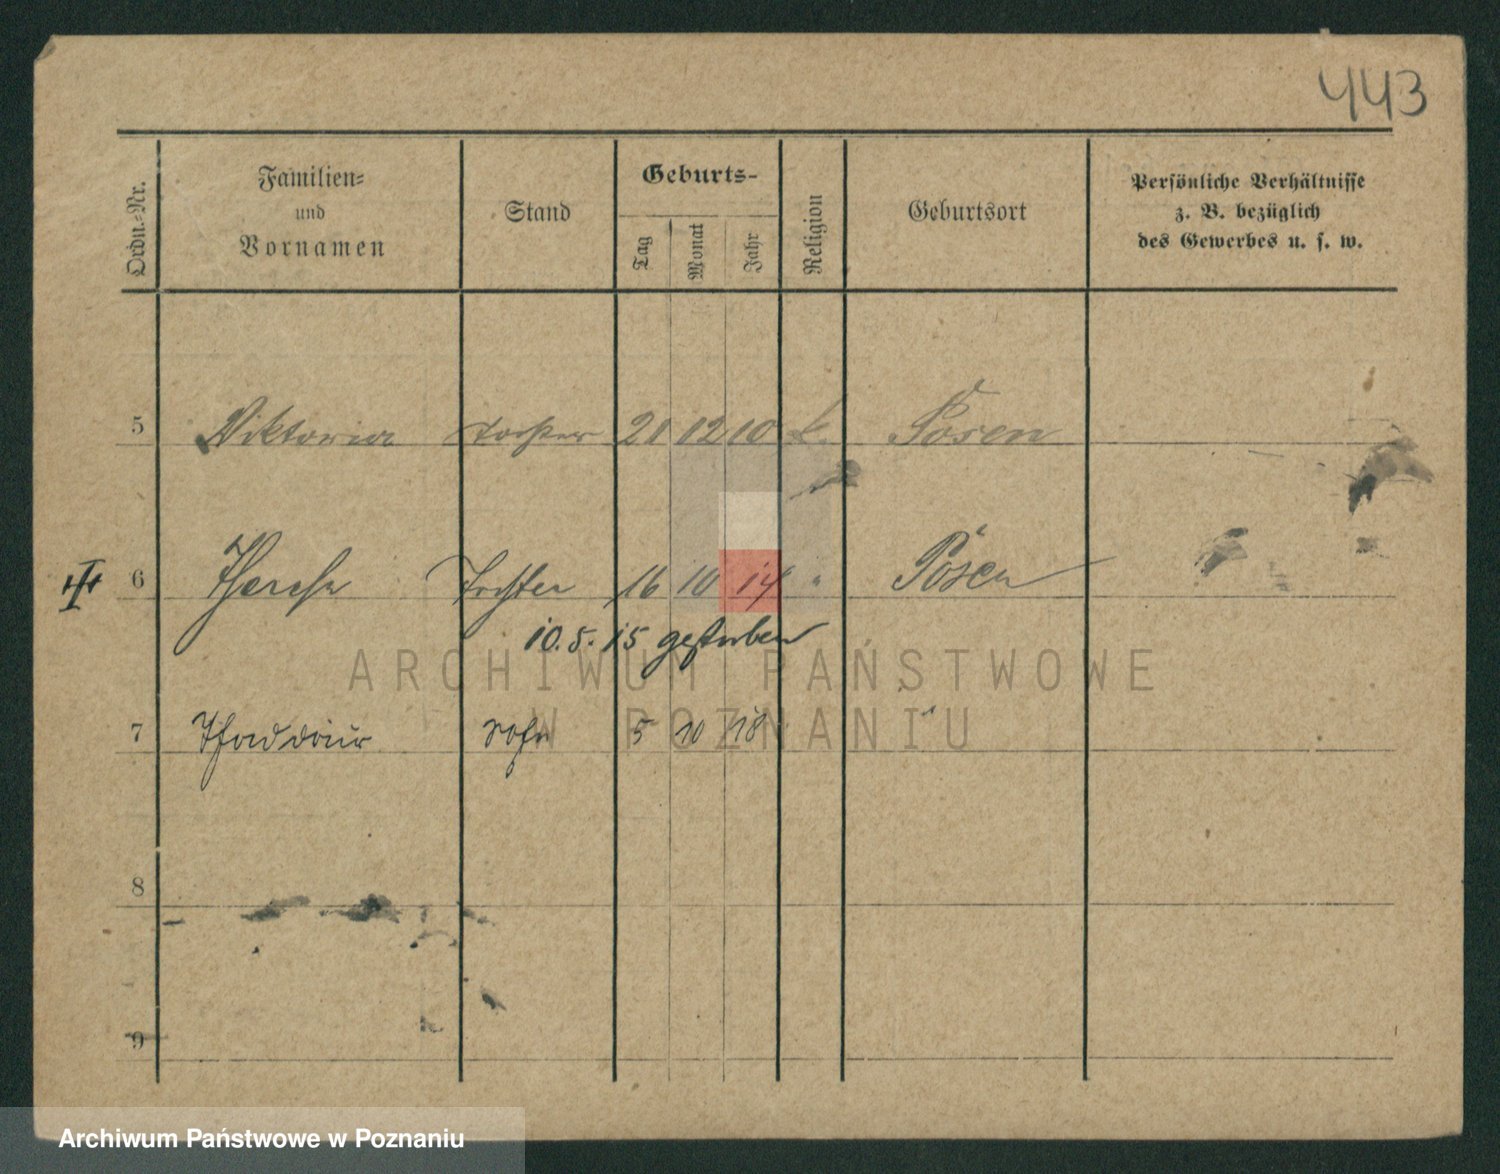 443
Ordn.=Nr.
Familien=
und
Vornamen
Stand
Geburts-
Tag
Monat
Jahr
Religion
Geburtsort
Persönliche Verhältnisse
z. B. bezüglich
des Gewerbes u. s. w.
5 Viktoria Tochter 21 12 10 k. Posen
6 Tochter 16 10 14 " Posen
10.5.15 gestorben
ARCHIWUM PAŃSTWOWE
7 Thaddäus Sohn 5 10 18 "
W POZNANIU
8
9
Archiwum Państwowe w Poznaniu